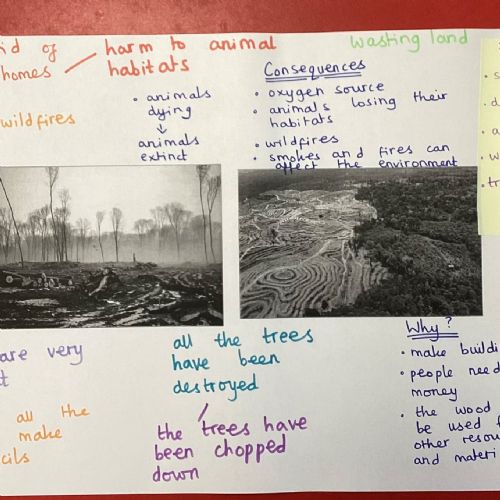 id of
homes
harm to animal
habitats
wasting land
wildfires
• animals
dying
↓
animals
extinct
Consequences
• oxygen source
• animals losing their
habitats
• wildfires
• smokes and fires can
affect the environment
are very
t
all the
make
cils
all the trees
have been
destroyed
the trees have
been chopped
down
Why?
• make buildi
• people need
money
• the wood
be used f
other resou
and materi
• s
• d
• a
• w
• tr